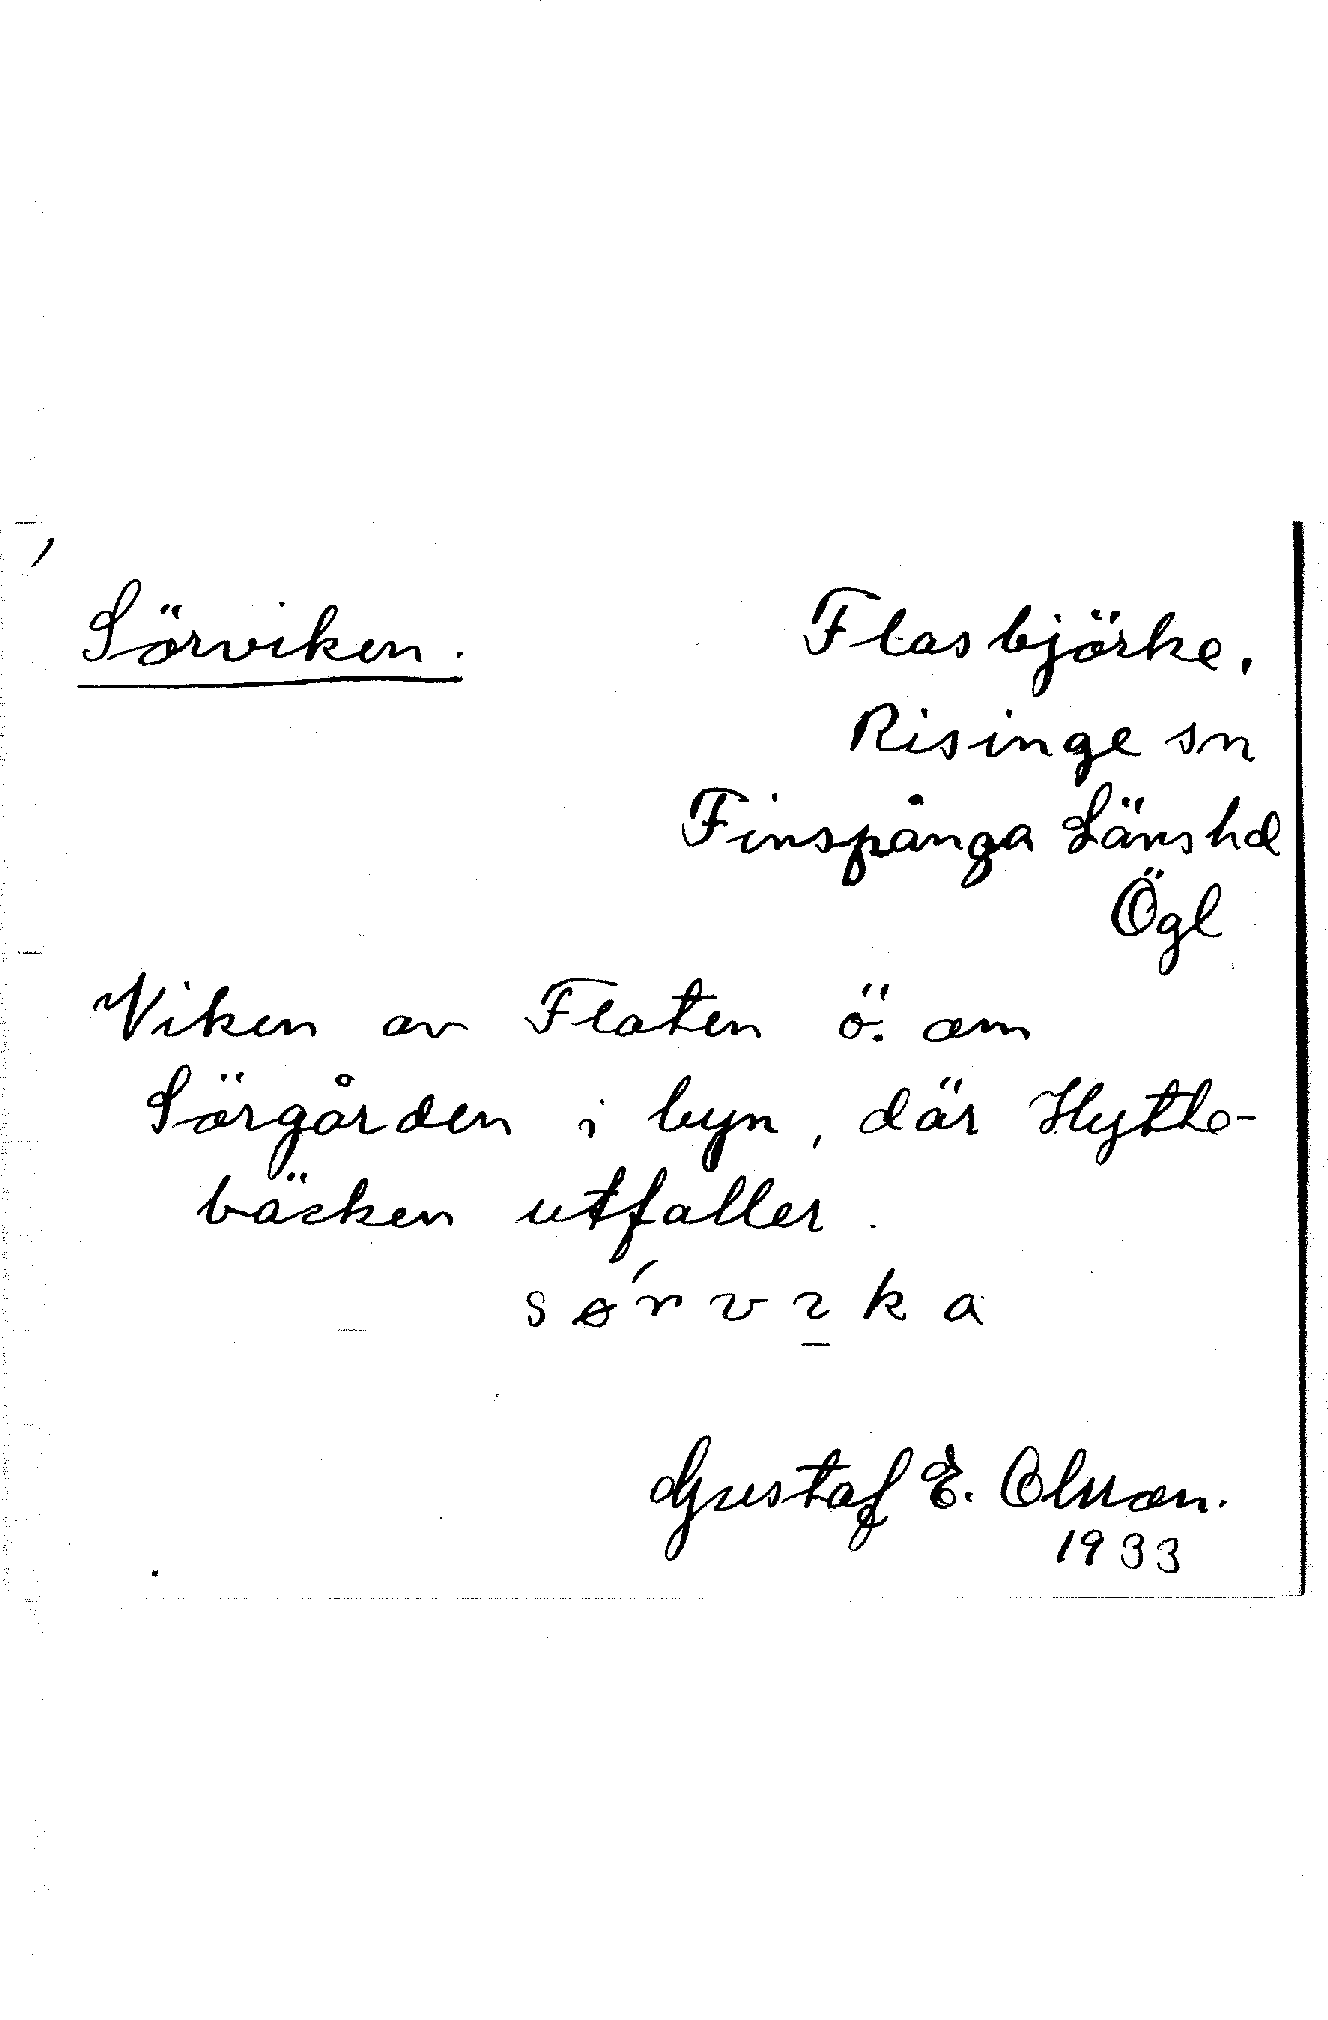 Sörviken.
Flasbjörke,
Risinge sn
Finspånga Länshd
Ögl
Viken av Flaten ö. om
Sörgården i byn, där Hytte-
bäcken utfaller.
Gustaf E. Olsson.
1933